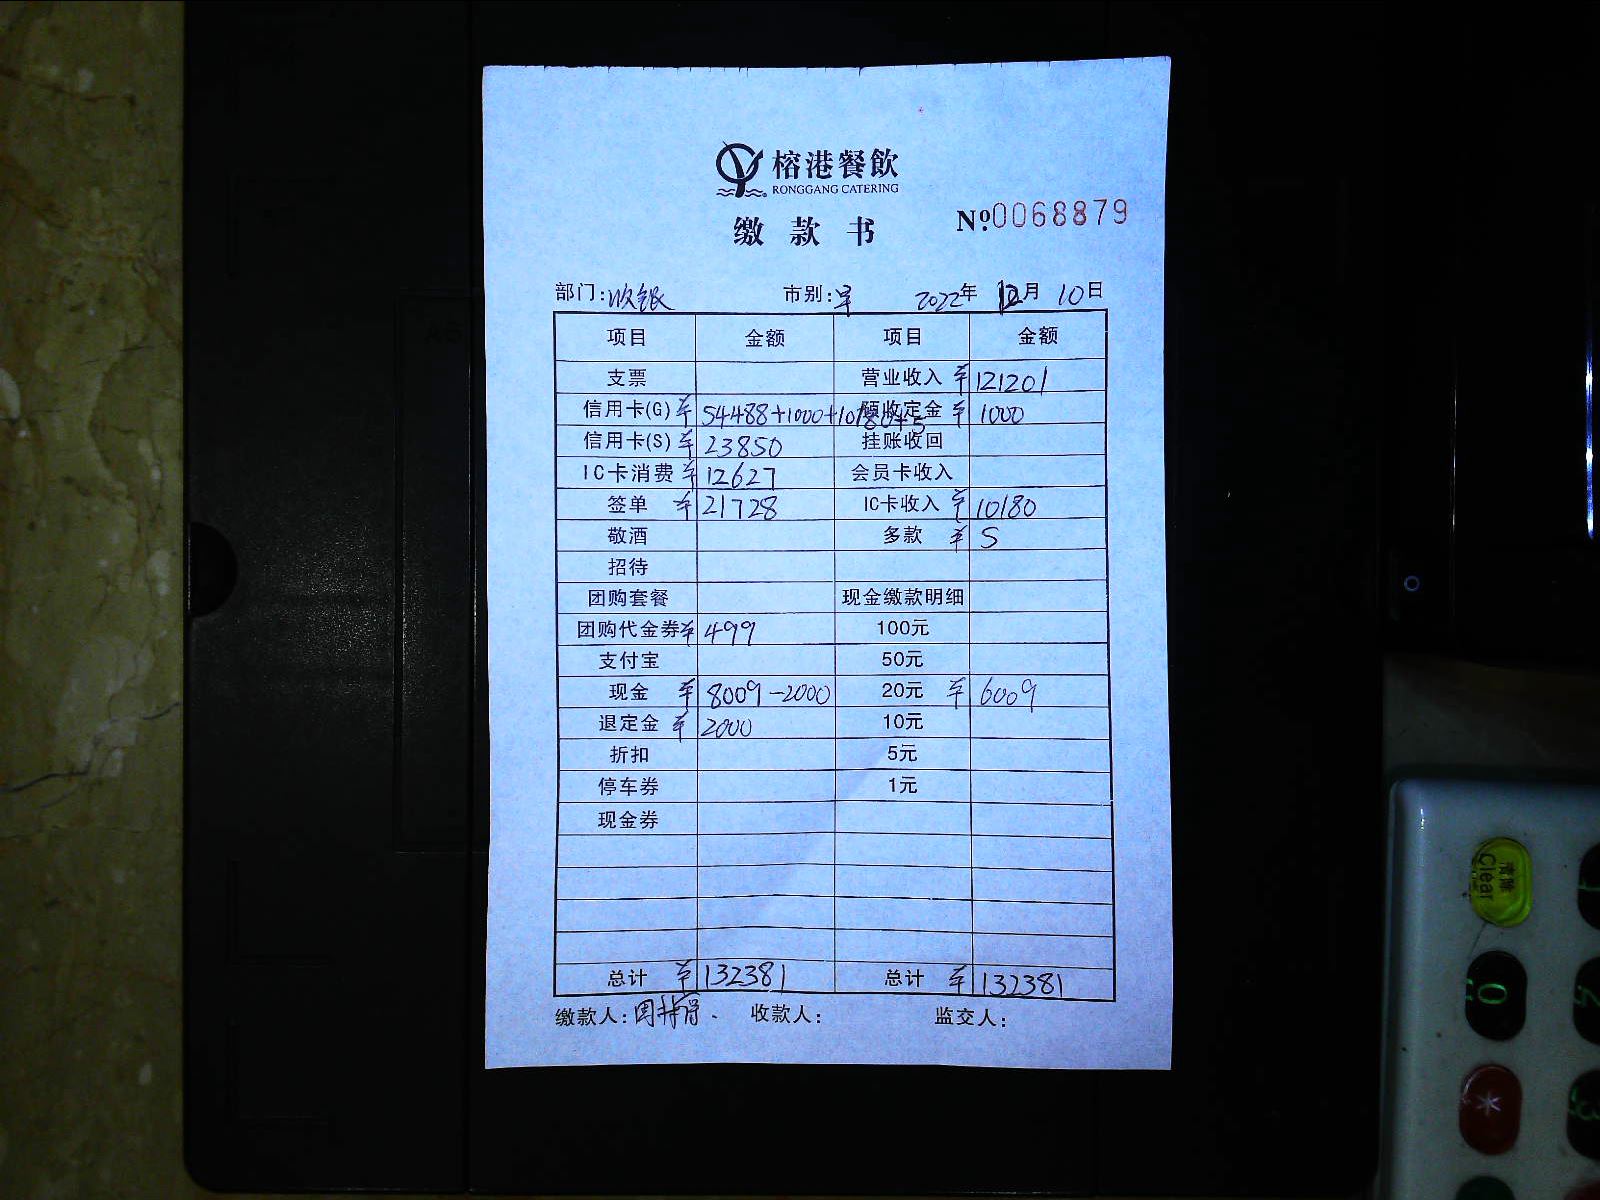 榕港餐飲
RONGGANG CATERING
缴款书
Nº.0068879
部门:收银 市别:早 2022年 12月 10日
项目 金额 项目 金额
支票 营业收入 ¥121201
信用卡(G) ¥54488+1000+10180+5 预收定金 ¥1000
信用卡(S) ¥23850 挂账收回
IC卡消费 ¥12627 会员卡收入
签单 ¥21728 IC卡收入 ¥10180
敬酒 多款 ¥5
招待
团购套餐 现金缴款明细
团购代金券 ¥499 100元
支付宝 50元
现金 ¥8009-2000 20元 ¥6009
退定金 ¥2000 10元
折扣 5元
停车券 1元
现金券
总计 ¥132381 总计 ¥132381
缴款人: 收款人: 监交人:
清除
Clear
0
*